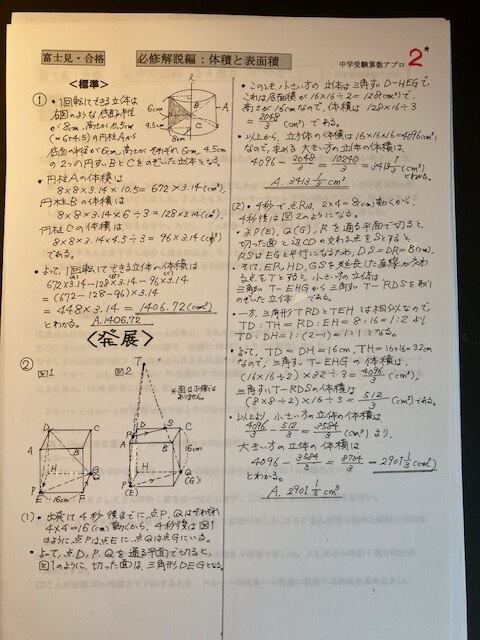 富士見・合格
必修解説編:体積と表面積
中学受験算数アプロ
2*
<標準>
① ・1回転してできる立体は
右図のような底面の半径
が8cm、高さが10.5cm
(=6+4.5)の円柱Aから
底面の半径が8cm、高さがそれぞれ6cm、4.5cm
の2つの円すいBとCをのぞいた立体となる。
l
6cm
4.5cm
8cm
A
B
C
・円柱Aの体積は
8×8×3.14×10.5=672×3.14(cm³)、
円すいBの体積は
8×8×3.14×6÷3=128×3.14(cm³)、
円すいCの体積は
8×8×3.14×4.5÷3=96×3.14(cm³)
である。
・よって、1回転してできる立体の体積は
(A) (B) (C)
672×3.14-128×3.14-96×3.14
=(672-128-96)×3.14
=448×3.14=1406.72(cm³)
とわかる。 A.1406.72
<発展>
② 図1
図2
※図は正確では
ありません。
D
C
A
B
H
G
Q
P
E
F
16cm
T
D
S
C
R
A
B
16cm
H
Q
(G)
P
(E)
F
(1)・出発して4秒後までに、点P、Qはそれぞれ
4×4=16(cm)動くから、4秒後は図1
のように、点Pは点Eに、点Qは点Gにいる。
・よって、点D、P、Qを通る平面で切ると、
図1のように、切った面は、三角形DEGとなる。
・このとき、小さい方の立体は三角すいD-HEGで、
これは底面積が16×16÷2=128(cm²)で、
高さが16cmなので、体積は128×16÷3
=2048/3(cm³)である。
・以上から、立方体の体積は16×16×16=4096(cm³)
なので、求める大きい方の立体の体積は
4096-2048/3=10240/3=3413 1/3(cm³)
とわかる。
A.3413 1/3 cm³
(2)・4秒で点Rは、2×4=8(cm)動くから、
4秒後は図2のようになる。
・点P(E)、Q(G)、Rを通る平面で切ると、
切った面と辺CDの交わる点をSとすると、
RSはEGと平行になるため、DS=DR=8(cm)。
・そして、ER、HD、GSを延長した直線が交わ
る点をTとすると、小さい方の立体は
三角すいT-EHGから三角すいT-RDSを取り
のぞいた立体である。
・一方、三角形TRDとTEHは相似なので、
TD:TH=RD:EH=8:16=1:2より
TD:DH=1:(2-1)=1:1となる。
・よって、TD=DH=16cm、TH=16+16=32cm
なので、三角すいT-EHGの体積は、
(16×16÷2)×32÷3=4096/3(cm³)、
三角すいT-RDSの体積は
(8×8÷2)×16÷3=512/3(cm³)である。
・以上より、小さい方の立体の体積は
4096/3-512/3=3584/3(cm³)より、
大きい方の立体の体積は
4096-3584/3=8704/3=2901 1/3(cm³)
とわかる。
A.2901 1/3 cm³